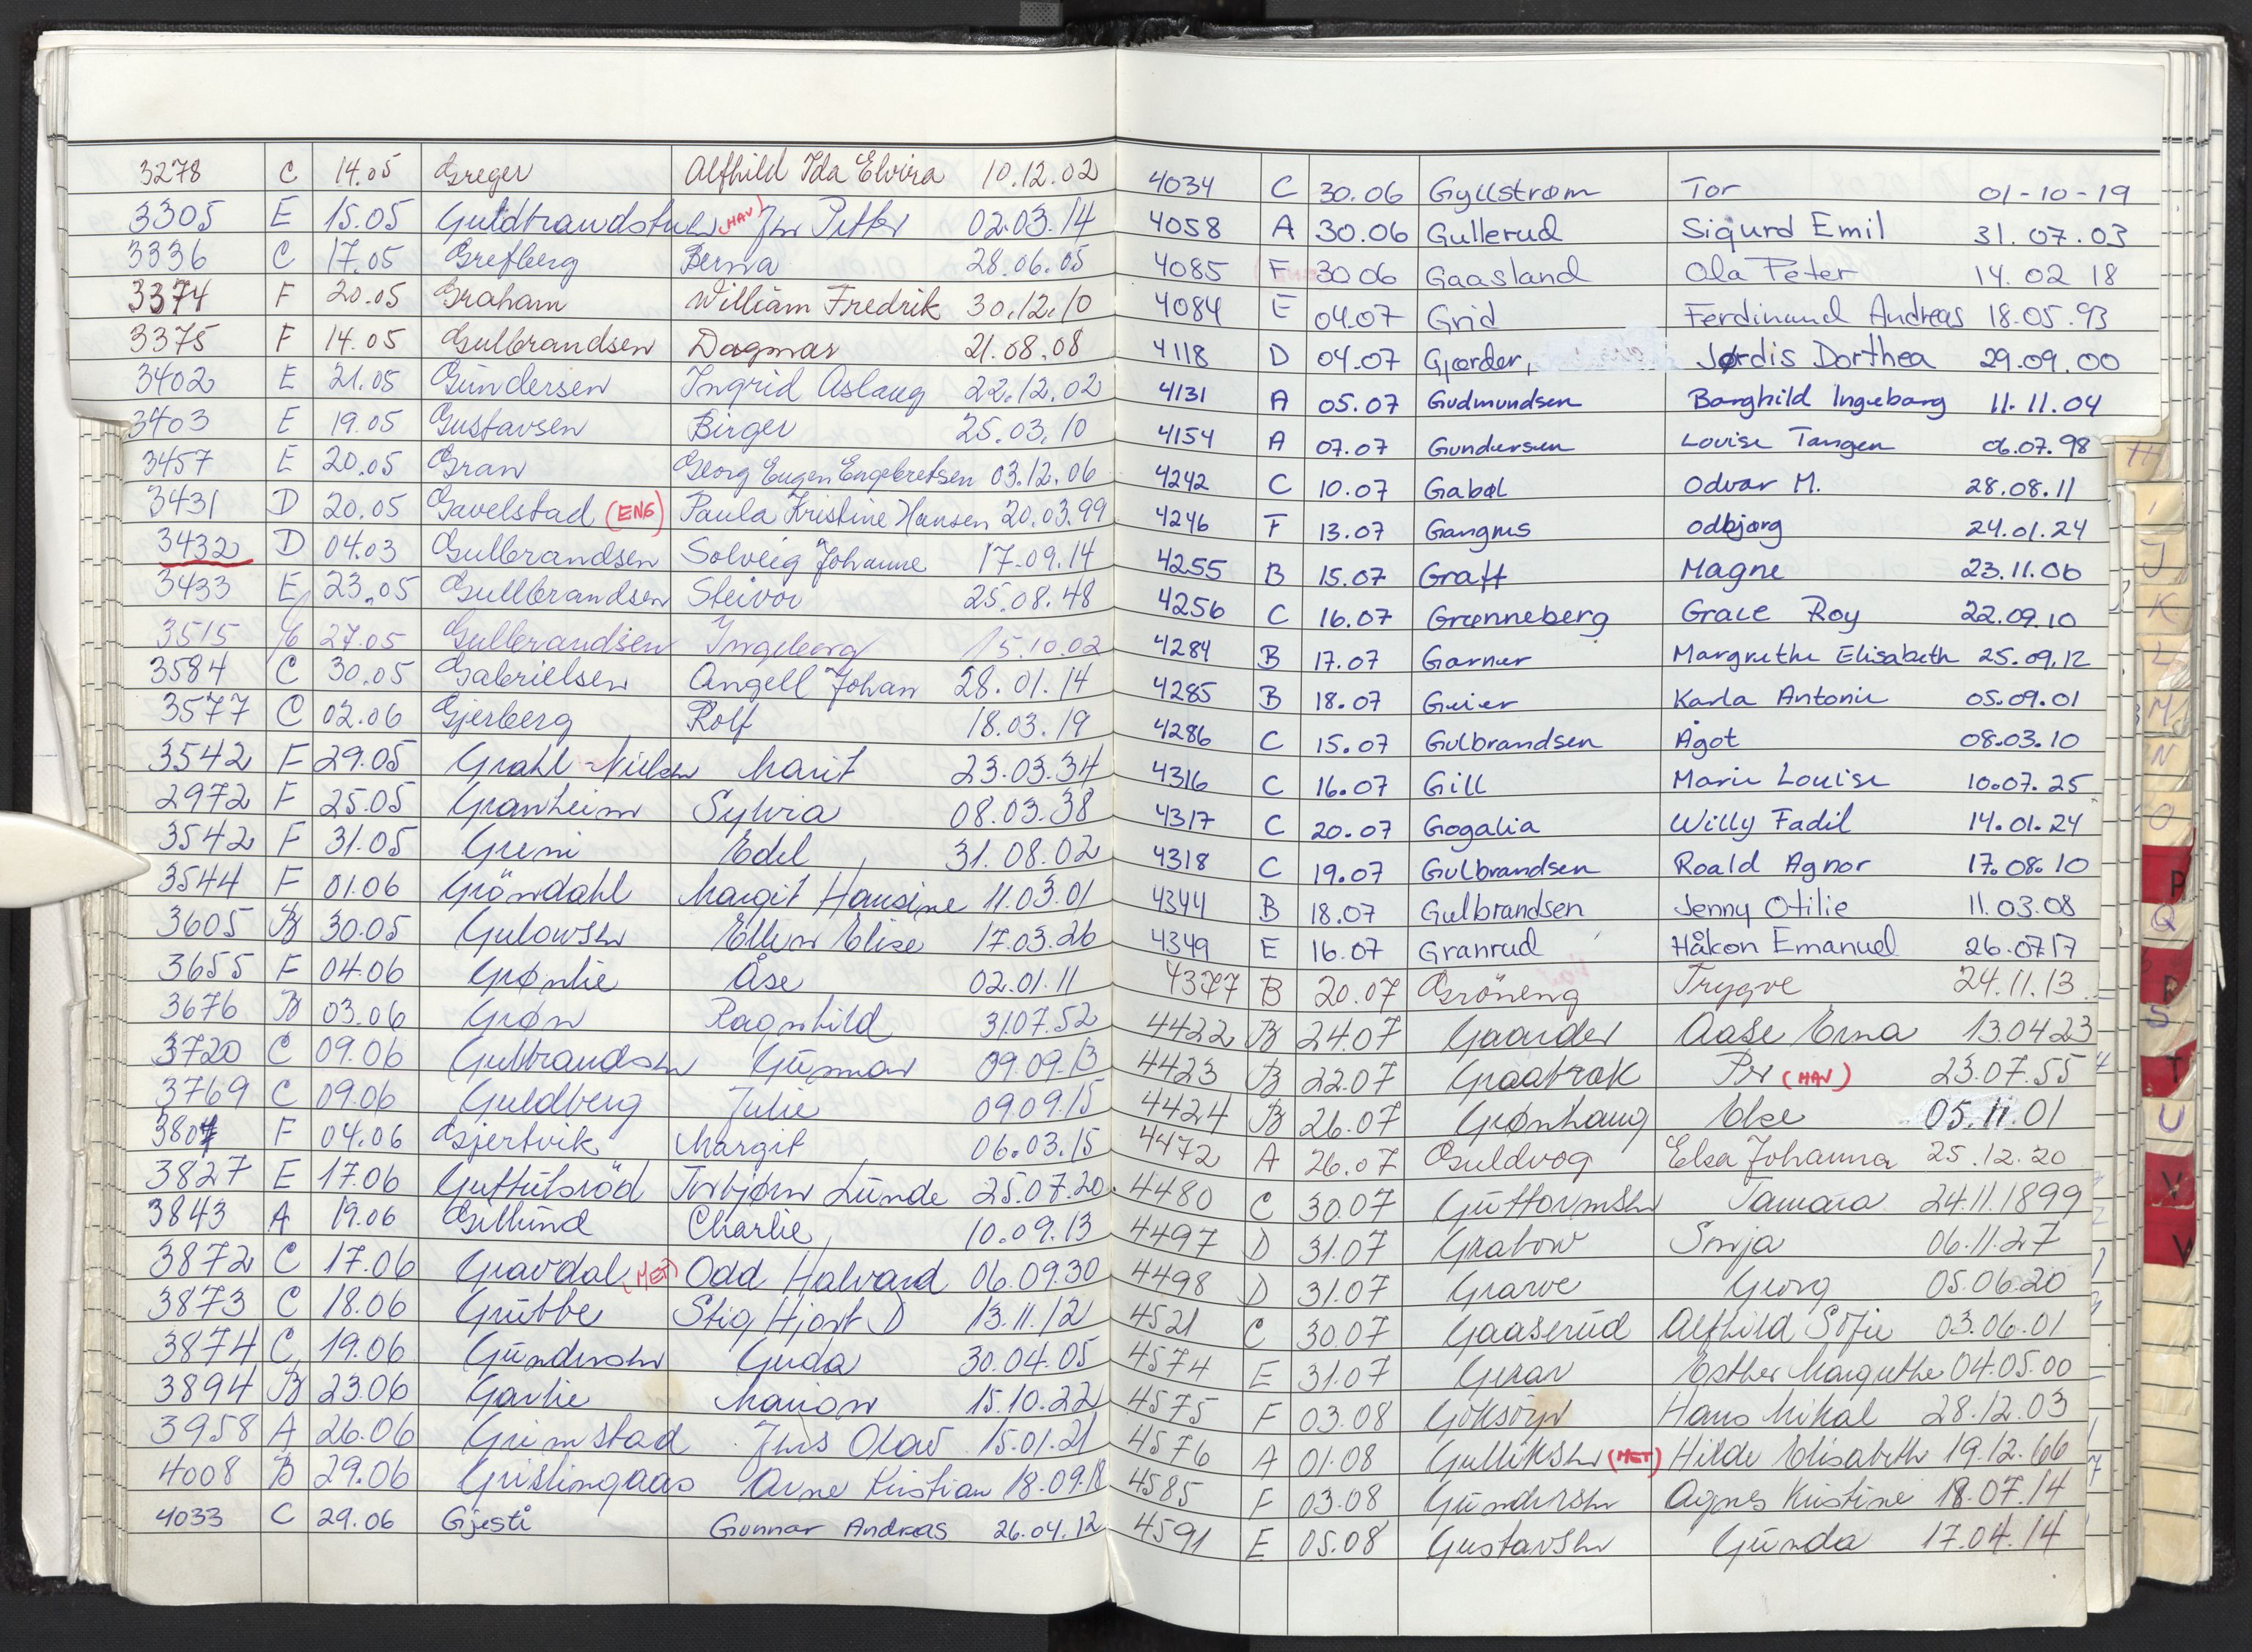 3278 C 14.05 Greger Alfhild Ida Elvira 10.12.02
3305 E 15.05 (HAV) Petter 02.03.14
3336 C 17.05 Grefberg Berna 28.06.05
3374 F 20.05 Graham William Fredrik 30.12.10
3375 F 14.05 Gulbrandsen Dagmar 21.08.08
3402 E 21.05 Gundersen Ingrid Aslaug 22.12.02
3403 E 19.05 Gustavsen Birger 25.03.10
3457 E 20.05 Gran Georg Eugen Engebretsen 03.12.06
3431 D 20.05 Gavelstad (ENG) Paula Kristine Hansen 20.03.99
3432 D 04.03 Gulbrandsen Solveig Johanne 17.09.14
3433 E 23.05 Gullbrandsen Steivor 25.08.48
3515 E 27.05 Gulbrandsen Ingeborg 15.10.02
3584 C 30.05 Gabrielsen Angell Johan 28.01.14
3577 C 02.06 Gjerberg Rolf 18.03.19
3542 F 29.05 Grahl Nielsen Marit 23.03.34
2972 F 25.05 Granheim Sylvia 08.03.38
3542 F 31.05 Greni Edel 31.08.02
3544 F 01.06 Gröndahl Margit Hansine 11.03.01
3605 B 30.05 Gulowsen Ellen Elise 17.03.26
3655 F 04.06 Grønlie Åse 02.01.11
3676 B 03.06 Grøn Ragnhild 31.07.52
3720 C 09.06 Gulbrandsen Gunnar 09.09.13
3769 C 09.06 Guldberg Julie 09.09.15
380 F 04.06 Gjertvik Margit 06.03.15
3827 E 17.06 Torbjørn Lunde 25.07.20
3843 A 19.06 Gillund Charlie 10.09.13
3872 C 17.06 Gravdal (MET) Odd Halvard 06.09.30
3873 C 18.06 Grubbe Stig Hjort D 13.11.12
3874 C 19.06 Gundersen Guda 30.04.05
3894 B 23.06 Garlie Marion 15.10.22
3958 A 26.06 Grimstad Jens Olav 15.01.21
4008 B 29.06 Grislingaas Arne Kristian 18.09.18
4033 C 29.06 Gjesti Gunnar Andreas 26.04.12
4034 C 30.06 Gyllstrøm Tor 01-10-19
4058 A 30.06 Gullerud Sigurd Emil 31.07.03
4085 F 30 06 Gaasland Ola Peter 14.02 18
4084 E 04.07 Grid Ferdinand Andreas 18.05.93
4118 D 04.07 Gjørder, Jørdis Dorthea 29.09.00
4131 A 05.07 Gudmundsen Borghild Ingeborg 11.11.04
4154 A 07.07 Gundersen Louise Tangen 06.07.98
4242 C 10.07 Gabøl Odvar M. 28.08.11
4246 F 13.07 Gangnus Odbjørg 24.01.24
4255 B 15.07 Graff Magne 23.11.06
4256 C 16.07 Grønneberg Grace Roy 22.09.10
4284 B 17.07 Garner Margrethe Elisabeth 25.09.12
4285 B 18.07 Geier Karla Antonie 05.09.01
4286 C 15.07 Gulbrandsen Ågot 08.03.10
4316 C 16.07 Gill Marie Louise 10.07.25
4317 C 20.07 Gogalia Willy Fadil 14.01.24
4318 C 19.07 Gulbrandsen Roald Agnor 17.08.10
4344 B 18.07 Gulbrandsen Jenny Otilie 11.03.08
4349 E 16.07 Granrud Håkon Emanuel 26.0717
4377 B 20.07 Gröneng Trygve 24.11.13
4422 B 24.07 Gaarder Aase Erna 13.0423
4423 B 22.07 Graabrøk Per (HAV) 23.07.55
4424 B 26.07 Grønhaug Else 05.11.01
4472 A 26.07 Guldvog Elsa Johanna 25.12.20
4480 C 30.07 Guttormsen Tamara 24.11.1899
4497 D 31.07 Grabow Sonja 06.11.27
4498 D 31.07 Grarve Georg 05.06.20
4521 C 30.07 Gaaserud Alfhild Sofie 03.06.01
4574 E 31.07 Esther Margrethe 04.05.00
4575 F 03.08 Göksöyr Hans Mikal 28.12.03
4576 A 01.08 Gulliksen (MET) Hilde Elisabeth 19.12.66
4585 F 03.08 Gundersen Agnes Kristine 18.07.14
4591 E 05.08 Gustavsen Gunda 17.04.14
H
I
J
K
L
M
N
O
P
Q
R
S
T
U
V